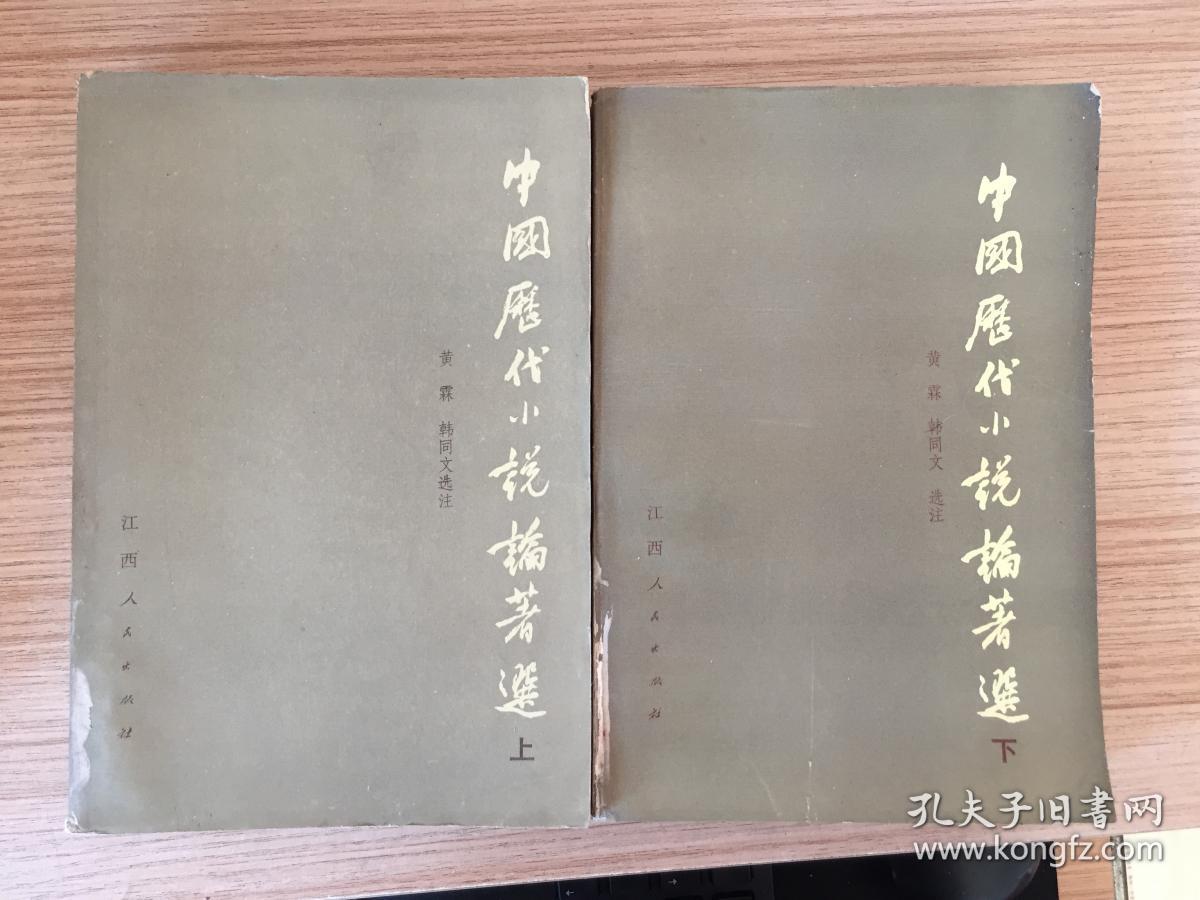 中國歷代小説論著選
上
黄霖 韩同文选注
江西人民出版社
中國歷代小説論著選
下
黄霖 韩同文 选注
江西人民出版社
孔夫子旧書网
www.kongfz.com